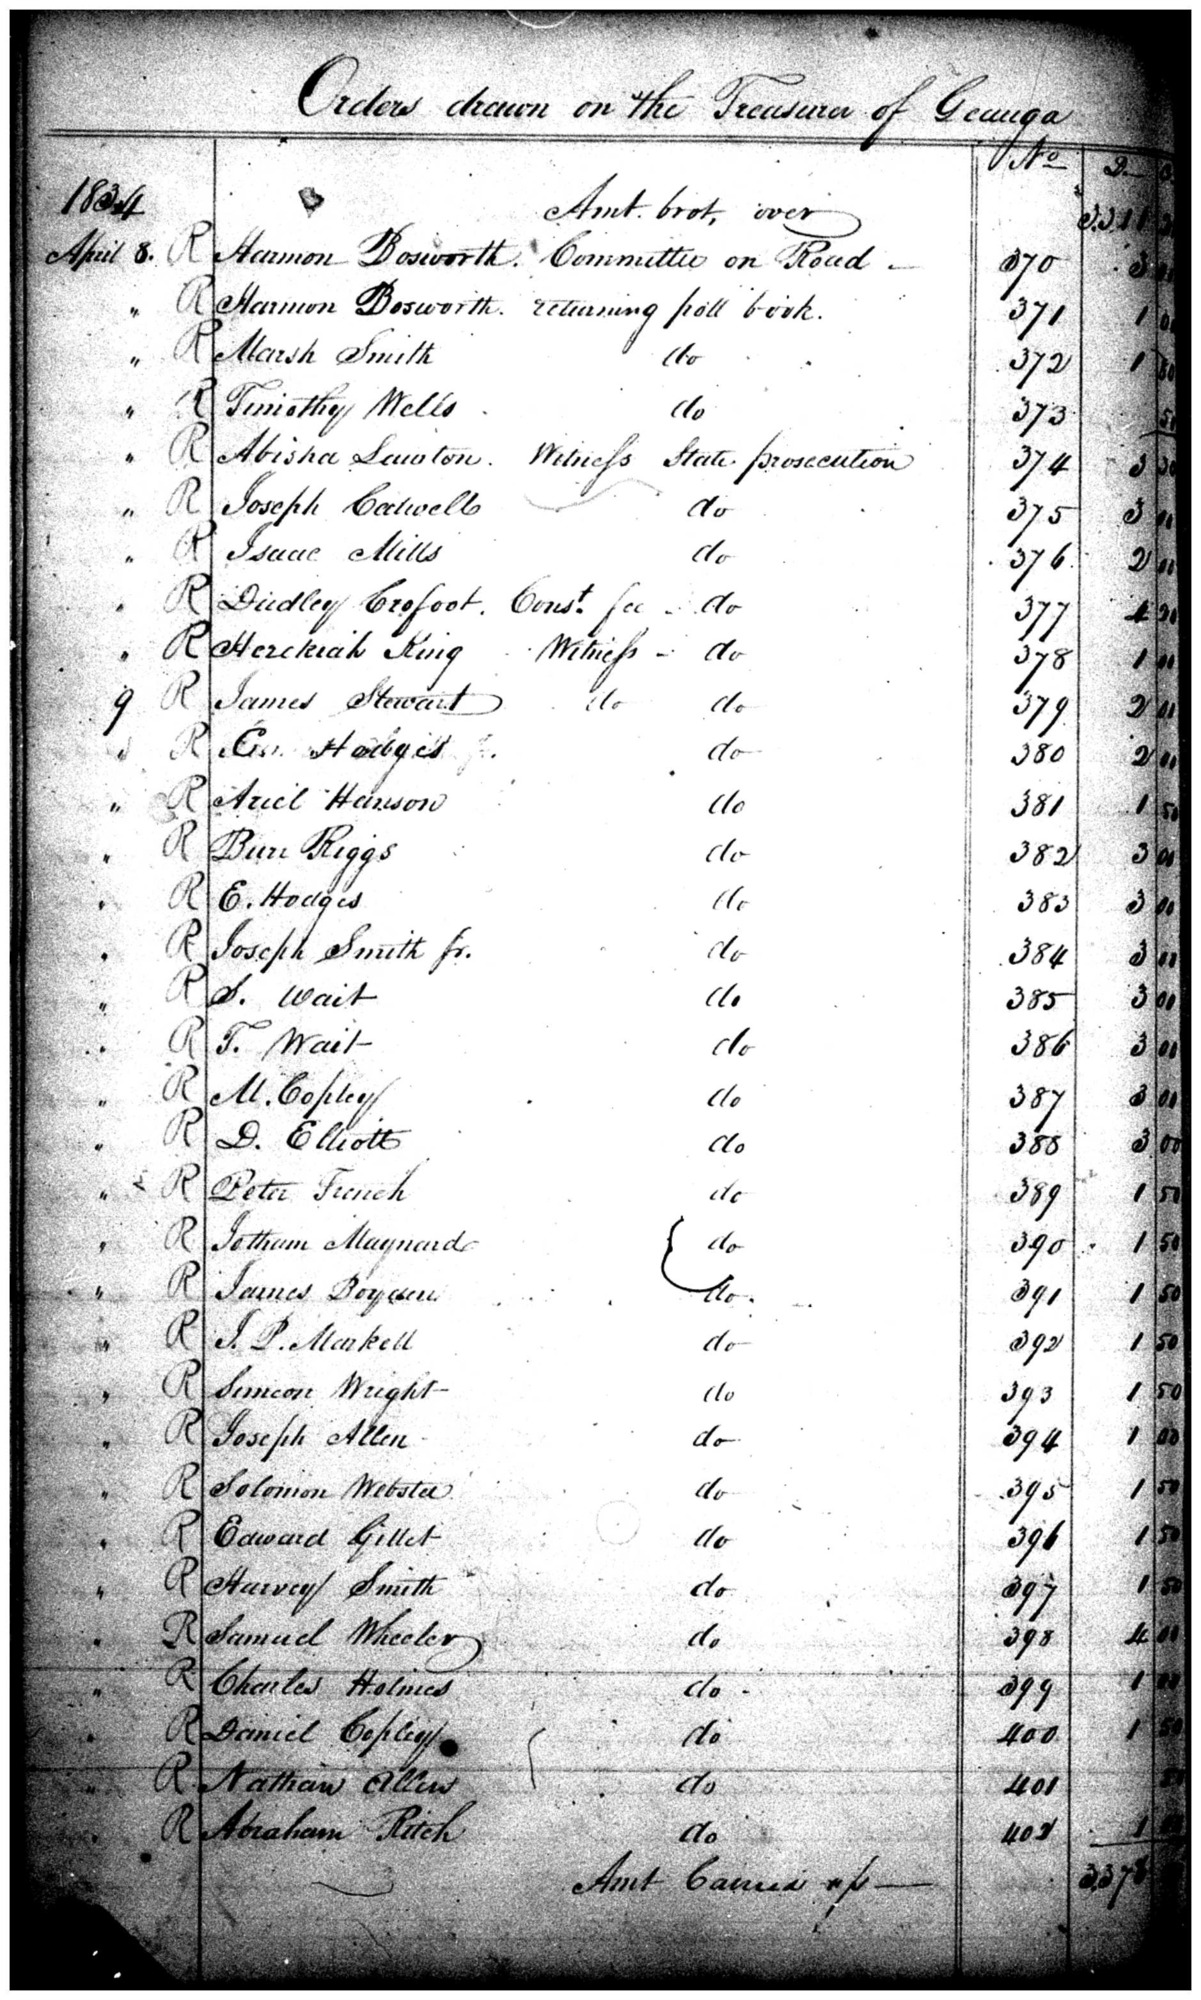 Orders drawn on the Treasurer of Geauga
No D. C.
1834 Amt. brot. over 3.311
April 8. R Harmon Bosworth. Committee on Road — 370 3 00
" R Harmon Bosworth. returning poll book. 371 1 00
" R Marsh Smith do 372 1
" R Timothy Wells do 373 50
" R Abisha Lawton. Witness State prosecution 374 3
" R Joseph Cadwell do 375 3 00
" R Isaac Mills do 376 2 00
" R Dudley Crofoot. Const. fee - do 377 4
" R Hezekiah King Witness - do 378 1 00
9 R James Stewart do do 379 2 00
" R Hodges do 380 2 00
" R Ariel Hanson do 381 1 50
" R Burr Riggs do 382 3 00
" R E. Hodges do 383 3 00
" R Joseph Smith jr. do 384 3 00
" R S. Wait do 385 3 00
" R T. Wait do 386 3 00
" R M. Copley do 387 3 00
" R D. Elliott do 388 3 00
" R Peter French do 389 1 50
" R Jotham Maynard do 390 1 50
" R James Boyden do. 391 1 50
" R J. P. Markell do 392 1 50
" R Simeon Wright do 393 1 50
" R Joseph Allen do 394 1 00
" R Solomon Webster do 395 1 50
" R Edward Gillet do 396 1 50
" R Harvey Smith do 397 1 50
" R Samuel Wheeler do 398 4 00
" R Charles Holmes do - 399 1 00
" R Daniel Copley do 400 1 50
" R Nathan Allen do 401
" R Abraham Ritch do 402 1
Amt Carried up — 3.378